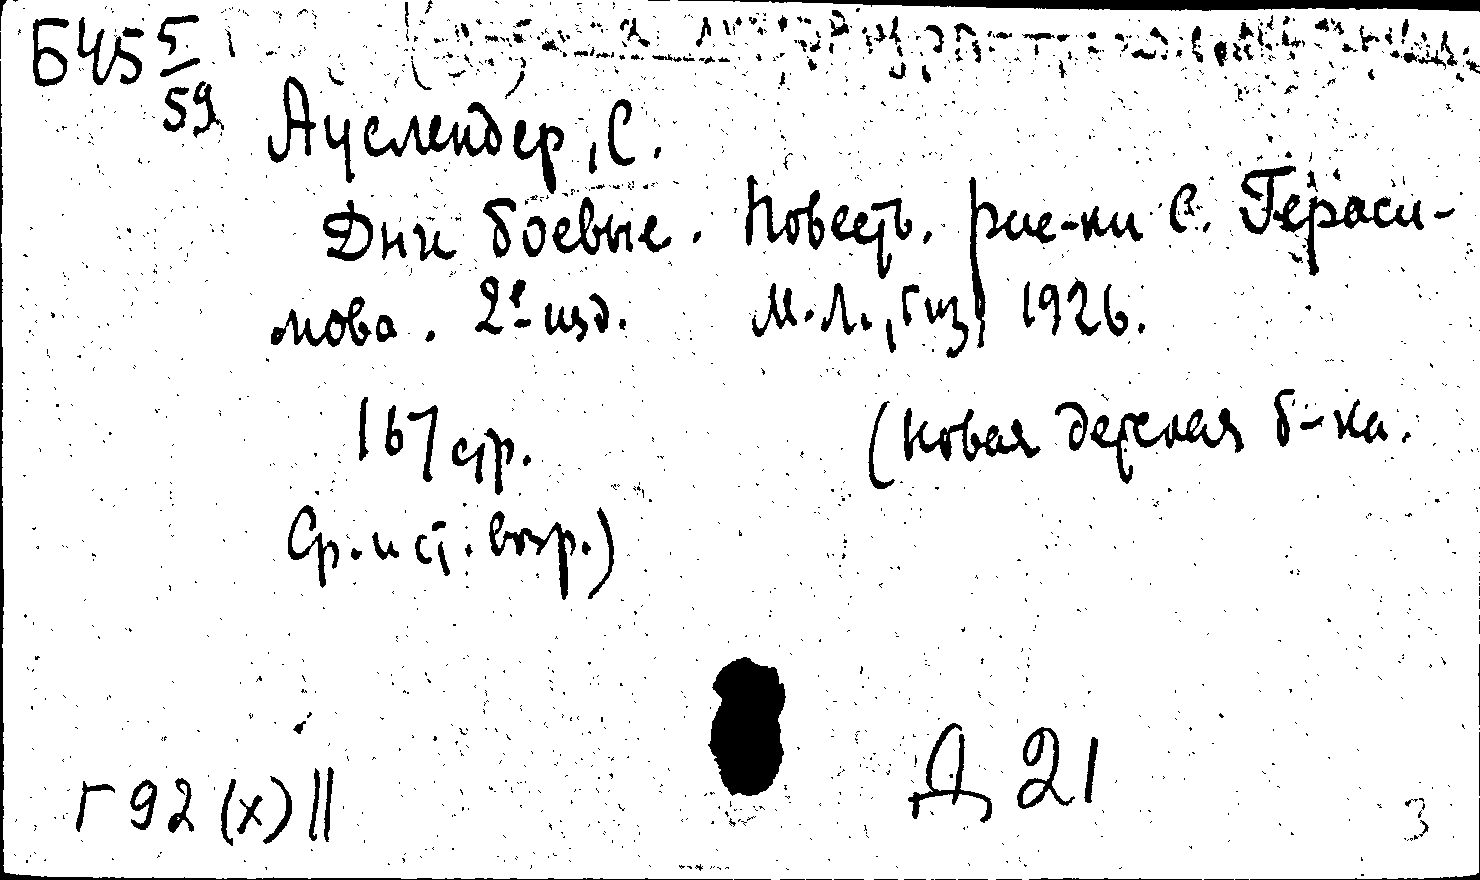 Б45 5/59
Ауслендер, С.
Дни боевые. Повесть. Рис-ки С. Гераси-
мова. 2е изд. М.-Л., Гиз, 1926.
167 стр. (Новая детская б-ка.
Ср. и ст. возр.)
Г 92 (х) || Д 21
3